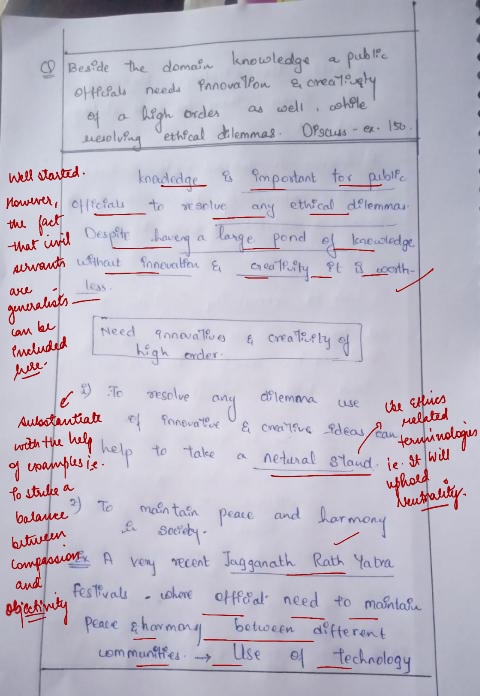 Q Beside the domain knowledge a public
officials needs innovation & creativity
of a high order as well, while
resolving ethical dilemmas. Discuss - ex. 150.
knowledge is important for public
officials to resolve any ethical dilemmas.
Despite having a large pond of knowledge
without innovation & creativity it is worth-
less.
Well started.
However,
the fact
that civil
servants
are
generalists
can be
included
here.
Need innovatives & creativity of
high order.
1) To resolve any dilemma use
of innovative & creative ideas can
help to take a netural stand.
Substantiate
with the help
of examples i.e.
To strike a
balance
between
compassion
and
objectivity
Use Ethics
related
terminologies
i.e. It will
uphold
Neutrality.
2) To maintain peace and harmony
in society.
Ex A very recent Jagganath Rath Yatra
festivals - where official need to maintain
peace & harmony between different
communities. → Use of technology